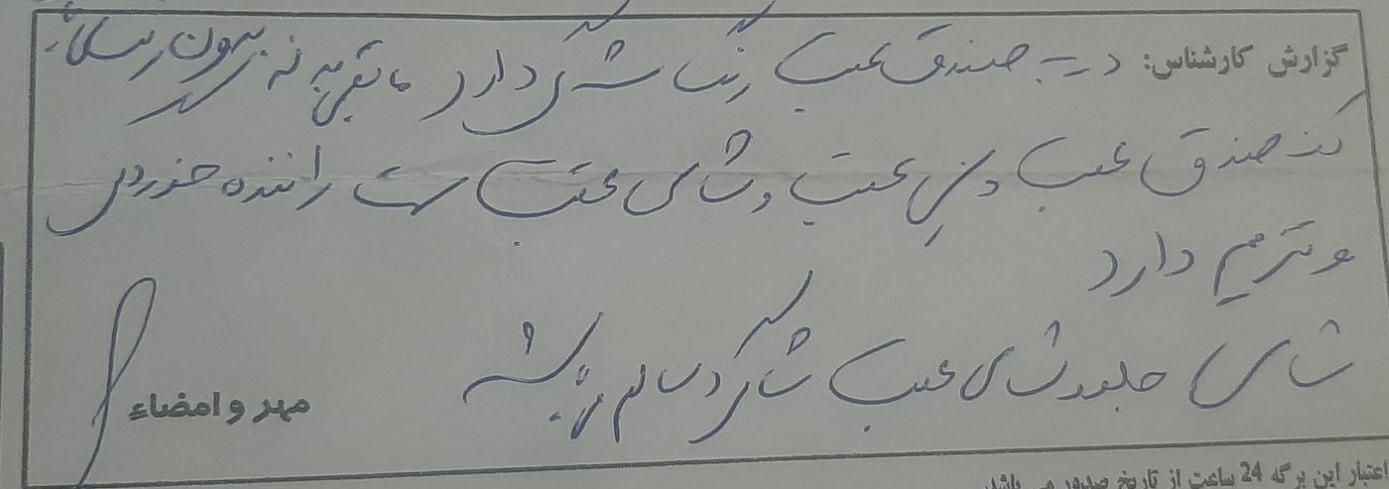 گزارش کارشناس: درب صندوق عقب رنگ شدگی دارد مابقی بدنه بیرون سالم
کف صندوق عقب و سینی عقب و شاسی عقب سمت راننده خوردگی
و ترمیم دارد
شاسی جلو و شاسی عقب شاگرد سالم می باشد
مهر و امضاء
اعتبار این برگه 24 ساعت از تاریخ صدور می باشد